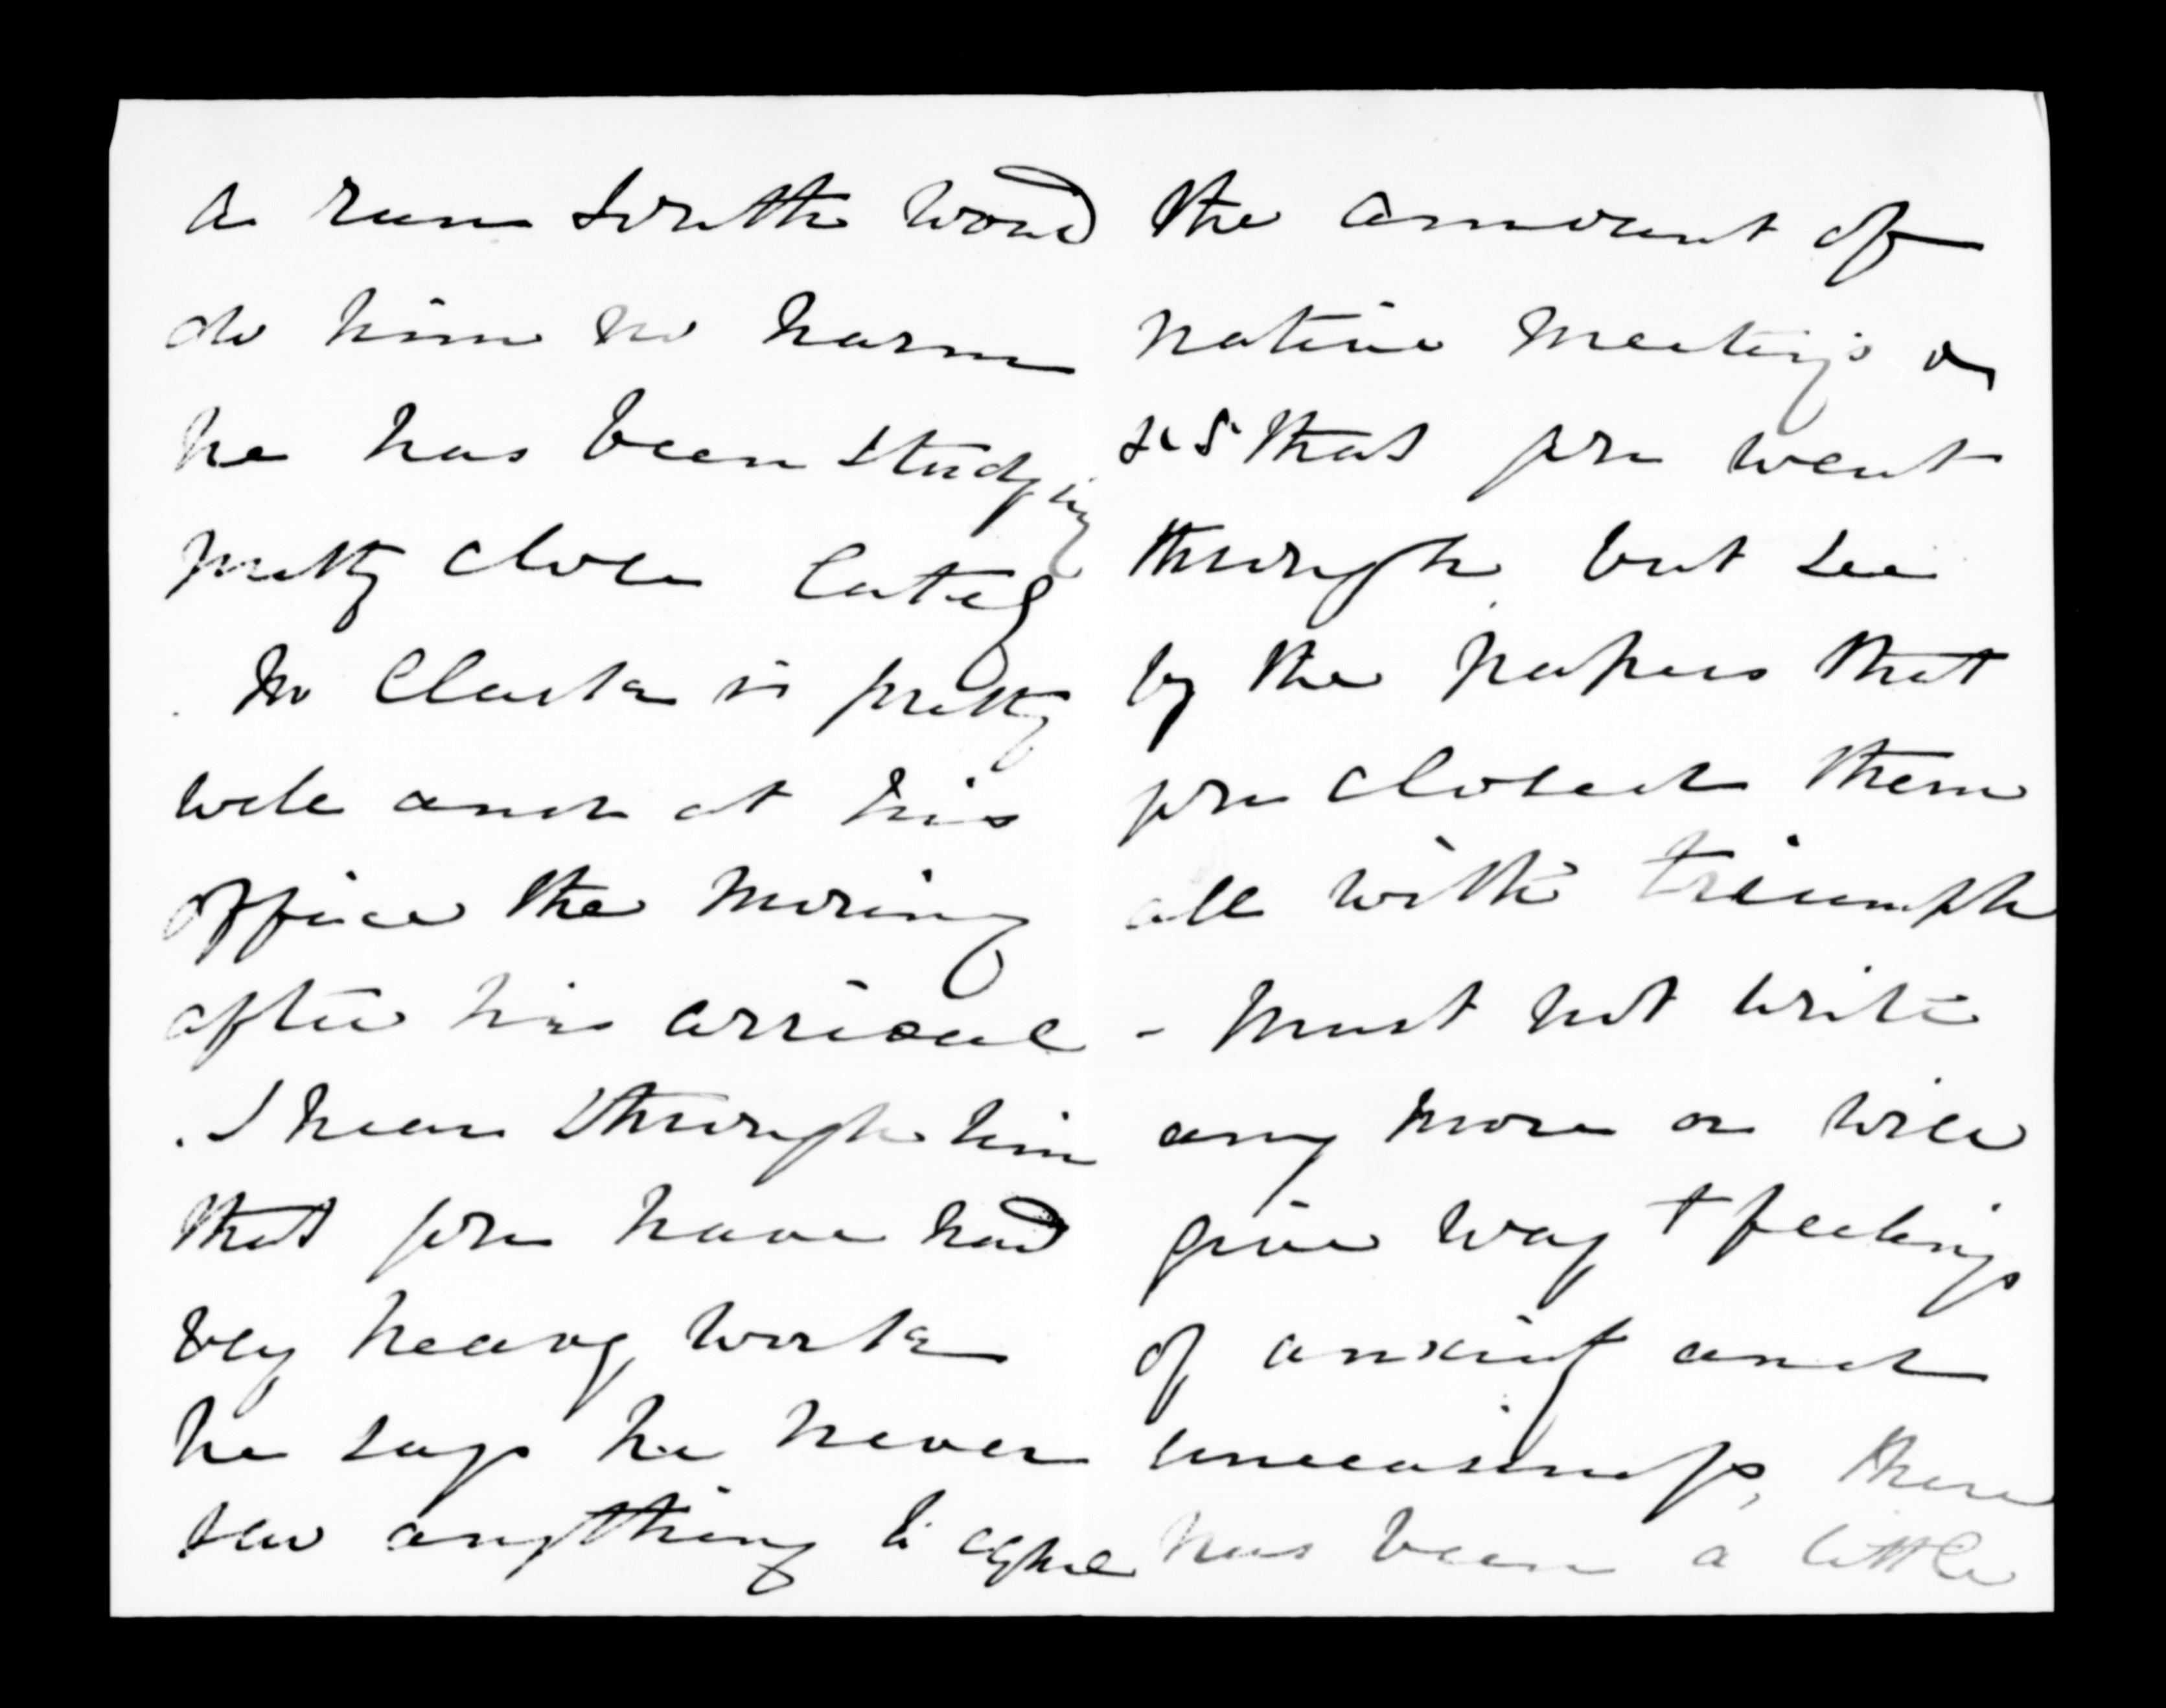 a run South would
do him no harm
he has been studying
pretty close lately
. Mr Clarke is pretty
well and at his
office the morning
after his arrival
. I hear through him
that you have had
very heavy work
he says he never
saw anything to equal
the amount of
native meetings &
that you went
through but see
by the papers that
you closed them
all with triumph
- must not write
any more or will
give way to feelings
of anxiety and
uneasiness, there
has been a little